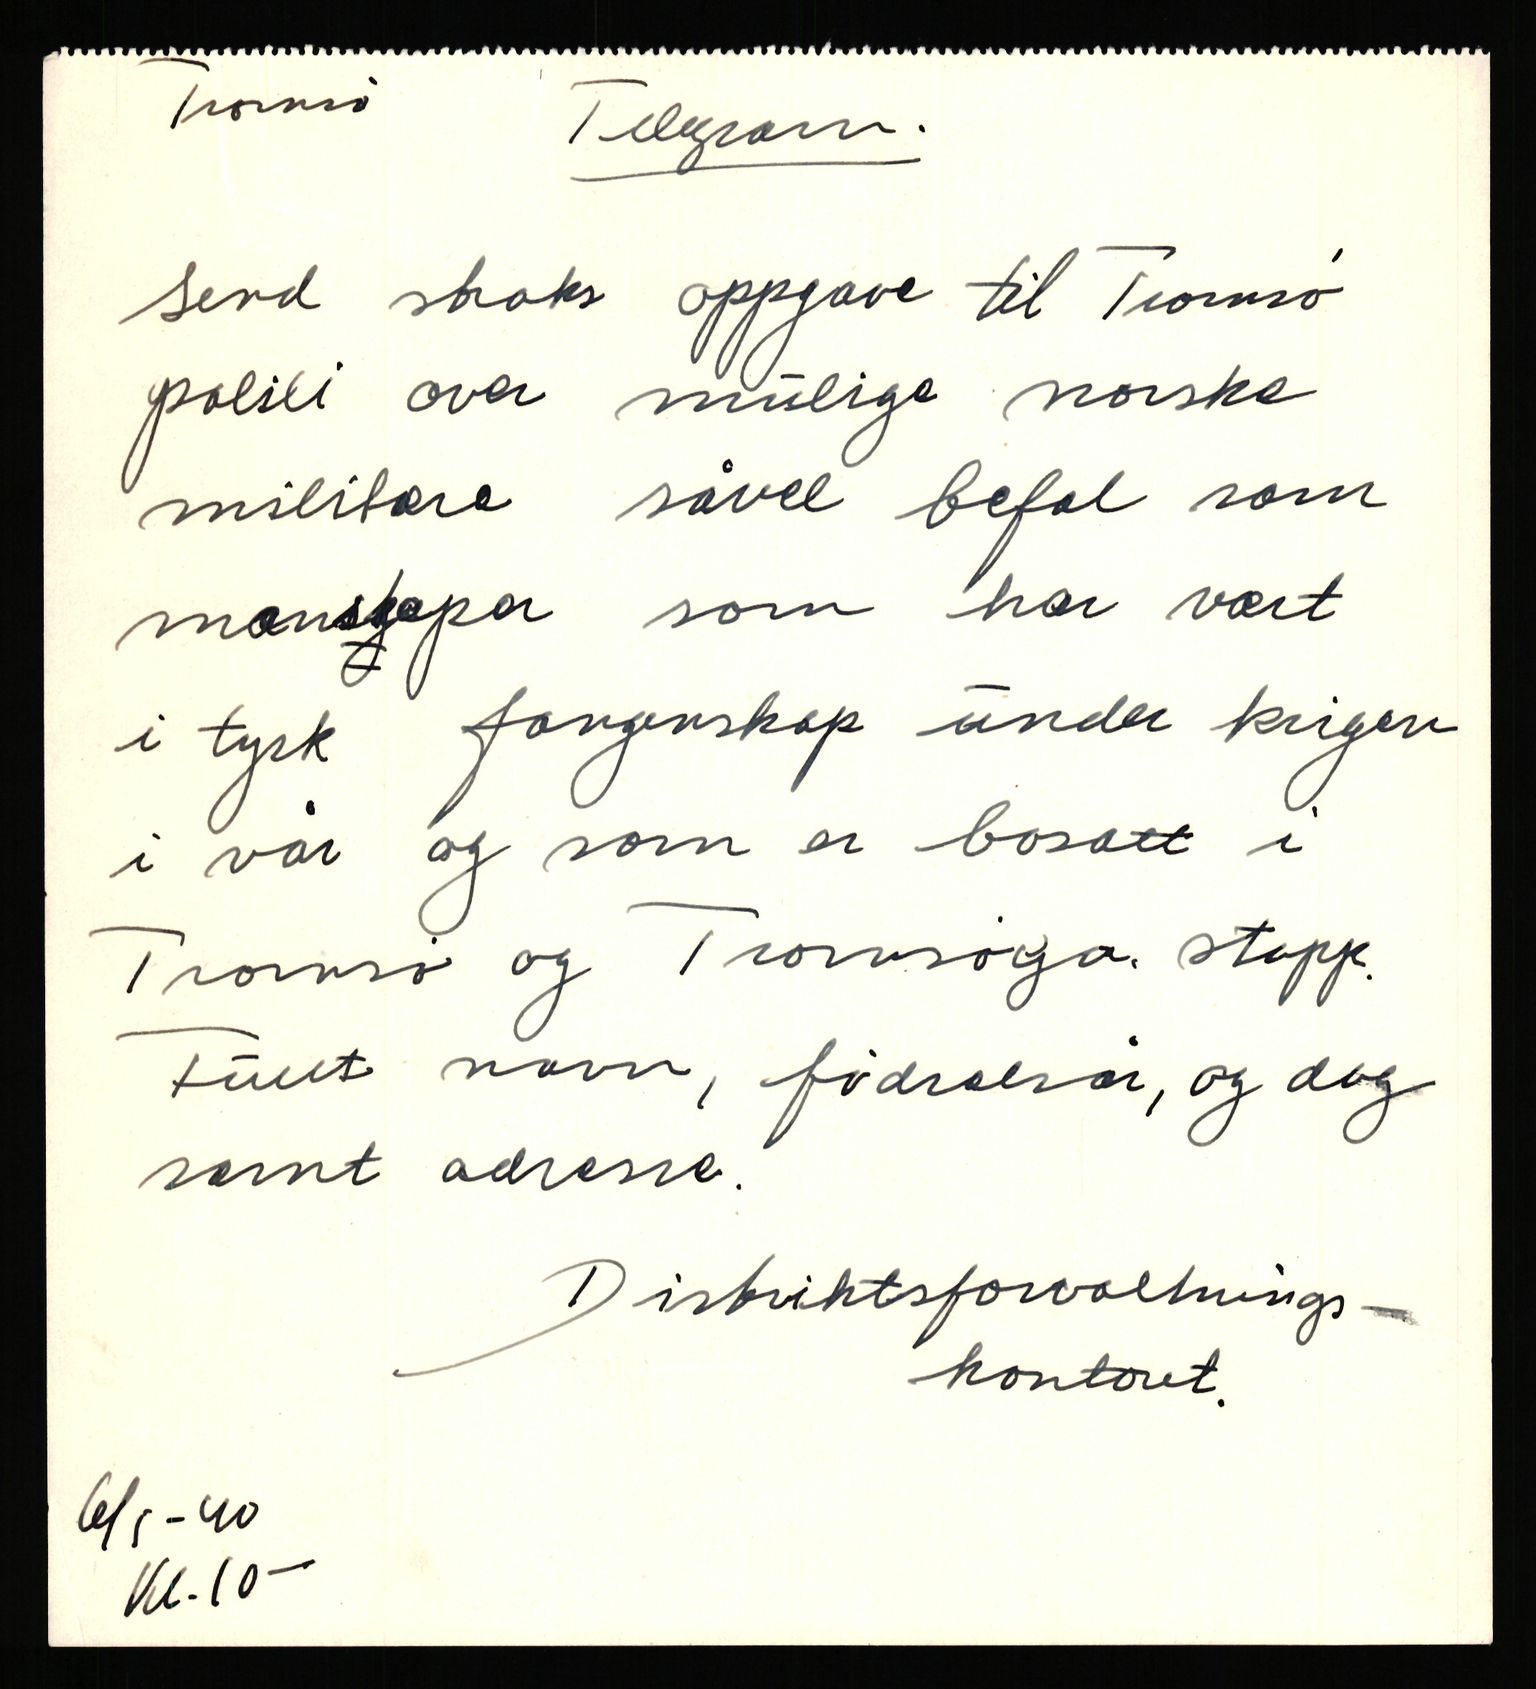 Tromsø
Telegram.
Send straks oppgave til Tromsø
politi over mulige norske
militære såvel befal som
manskaper som har vært
i tysk fangenskap under krigen
i vår og som er bosatt i
Tromsø og Tromsøya. stopp.
Fullt navn, födselsår, og dag
samt adresse.
Distriktsforvaltnings-
kontoret.
-40
Kl. 10-